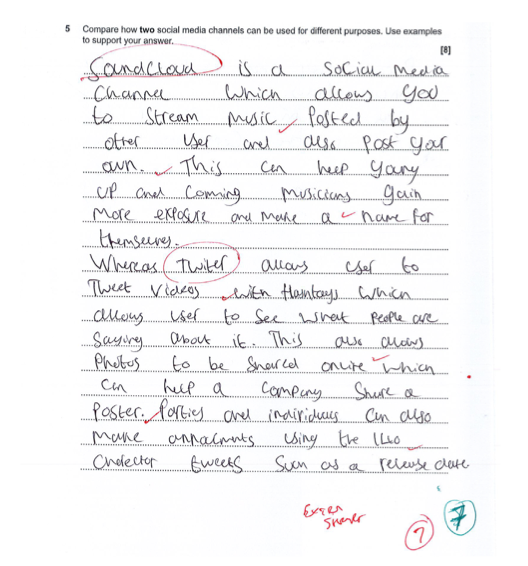 5 Compare how two social media channels can be used for different purposes. Use examples
to support your answer.
[8]
SoundCloud is a social media
Channel which allows you
to stream music posted by
other user and also post your
own. This can help young
up and coming musicians gain
more exposure and make a name for
themselves.
Whereas Twitter allows user to
Tweet videos with Hashtags which
allows user to see what people are
saying about it. This also allows
photos to be shared online which
can help a company share a
poster. Parties and individuals can also
make using the 140
charector tweets such as a release date
7
7